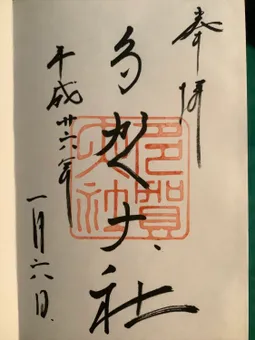 奉拝
多賀大社
多賀大社
平成廿六年
一月六日